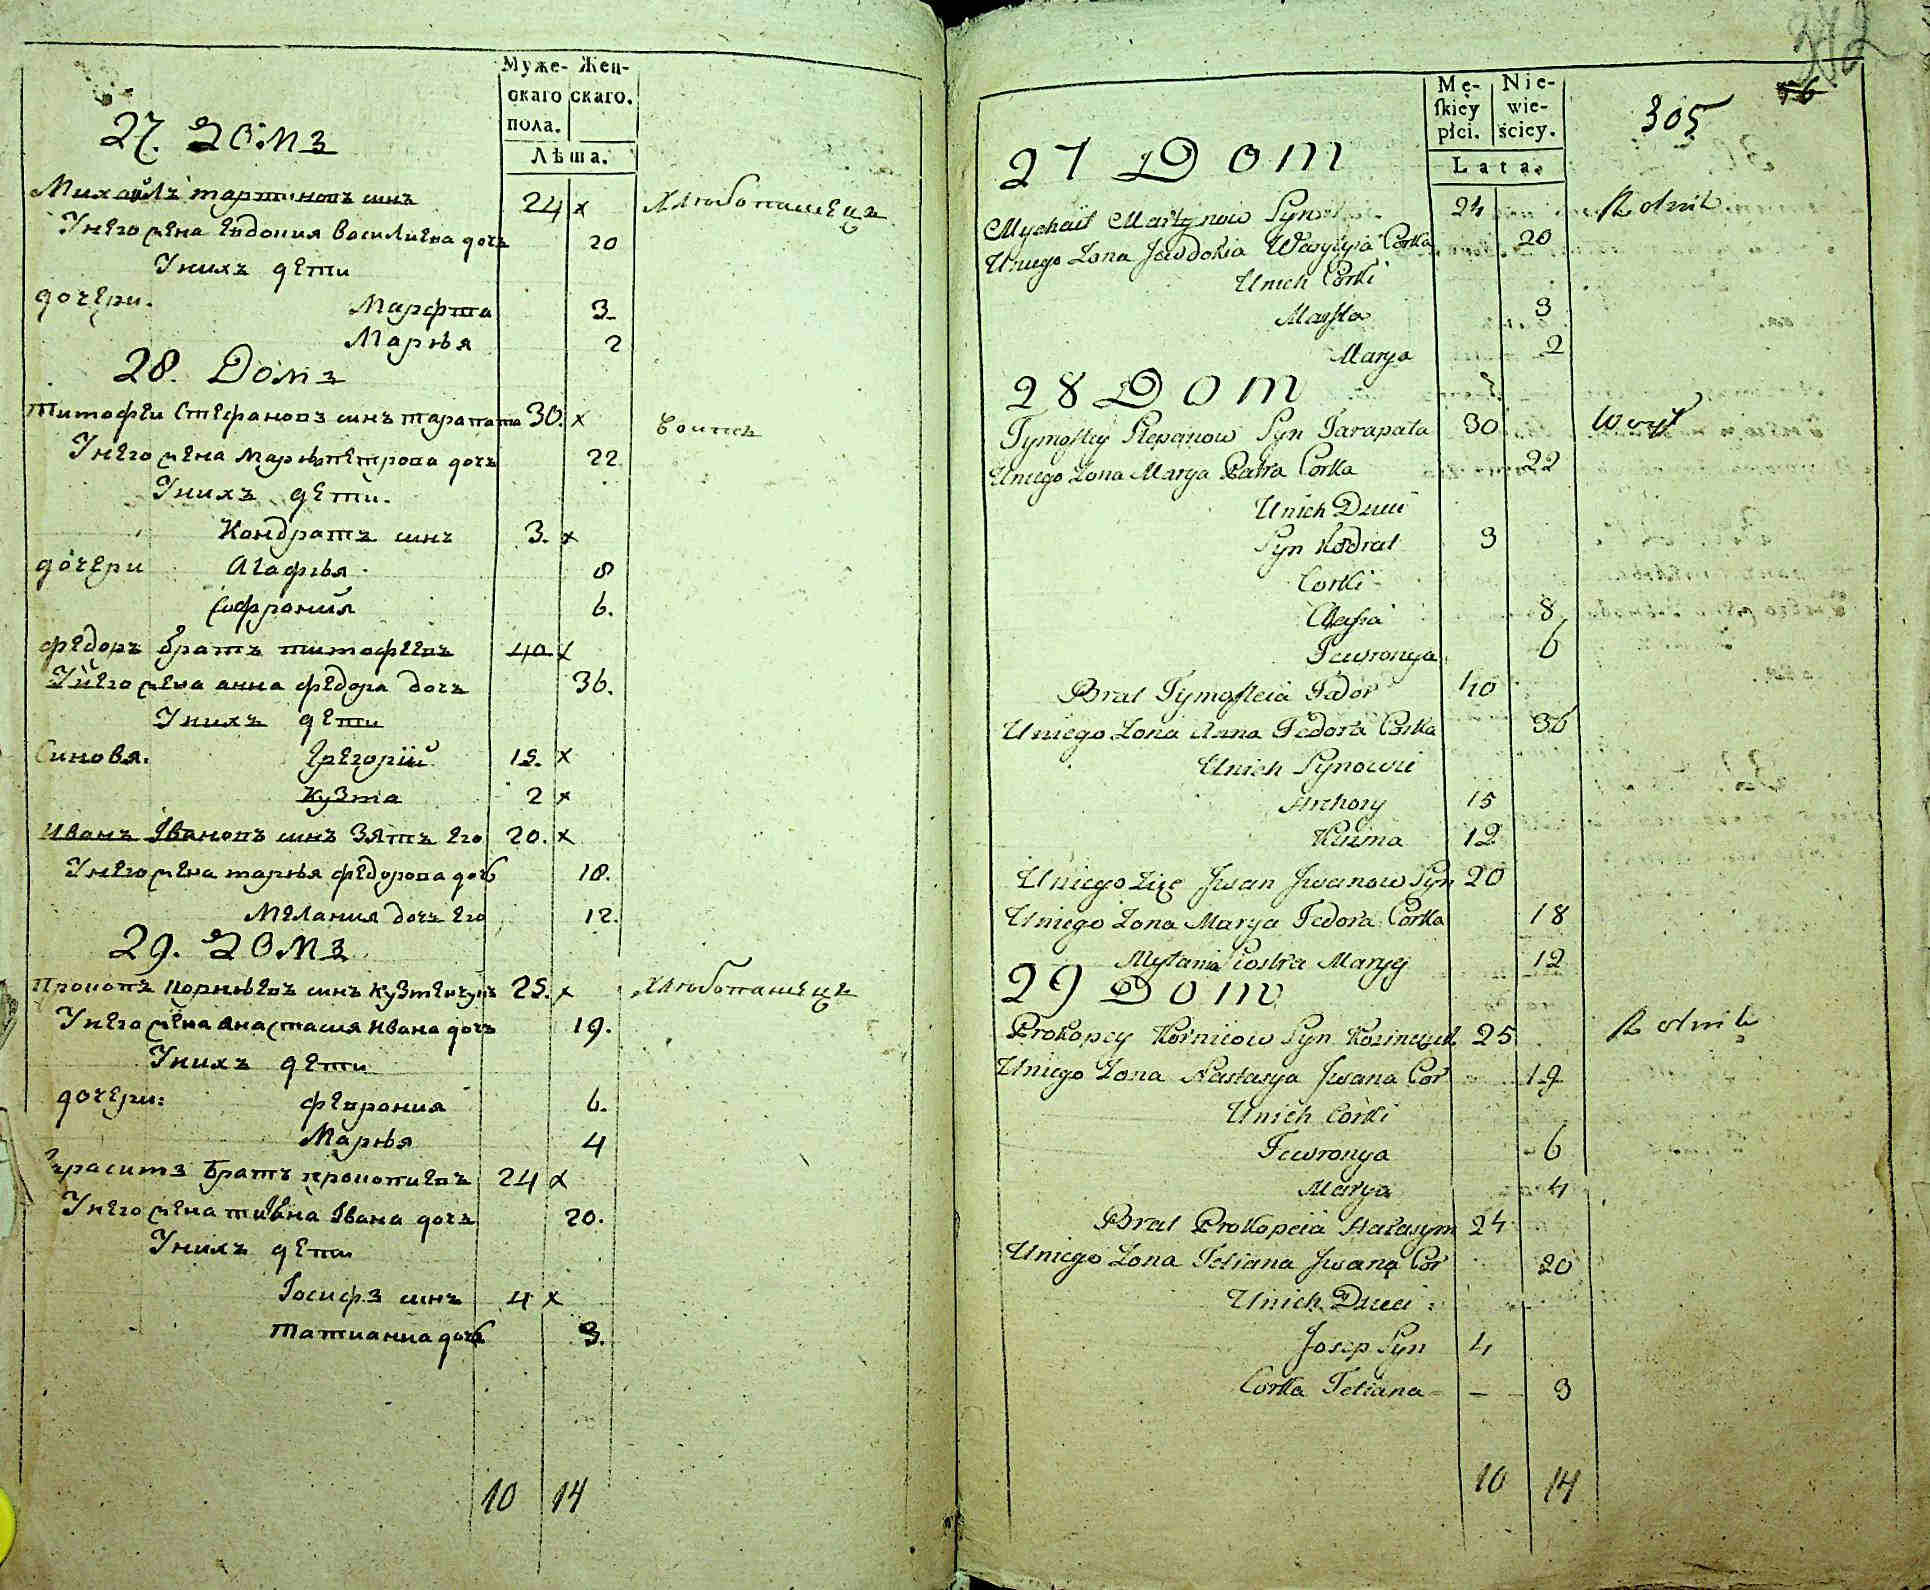 Муже- Жен-
скаго скаго.
пола.
Лѣта.
27. Домъ
Михаилъ мартиновъ синъ 24 x Хлюбопашецъ
Унего жена Евдокия Василиева дочъ 20
Унихъ дети
дочери. Марфта 3
Маръя 2
28. Домъ
Тимофеи Стефановъ синъ тарапата 30. x воитъ
Унего жена Маръя петрова дочъ 22
Унихъ дети.
Кондратъ синъ 3. x
дочери Агафъя 8
6.
федоръ братъ тимофеевъ 40 x
Унего жена анна федора дочъ 36.
Унихъ дети
Синовя. Григорий 15. x
Кузма 2 x
Иванъ Ивановъ синъ Зятъ Его 20. x
Унего жена маръя федорова дочъ 18.
Мелания дочъ Его 12.
29. Домъ
Прокопъ Корнѣевъ синъ кузменчукъ 25. x Хлюбопашецъ
Унего жена анастасия Ивана дочъ 19.
Унихъ дети
дочери: феврония 6.
Маръя 4
братъ прокопиевъ 24 x
Унего жена Ивана дочъ 20.
Унихъ дети
Іосифъ синъ 4 x
Татианна дочъ 3.
10 14
372
56
305
Mę- Nie-
skiey wie-
płci. ściey.
Lata.
27 Dom
Mychaił Martynow Syn 24 Rolnik
Uniego Zona Jewdokia Wasylyia Corka 20
Unich Corki
Marfta 3
Marya 2
28 Dom
Tymoftey Stepanow Syn Tarapata 30 Woyt
Uniego Zona Marya Petra Corka 22
Unich Dzieci
Syn Kodrat 3
Corki
8
Fewronya 6
Brat Tymofteia Fedor 40
Uniego Zona Anna Fedora Corka 36
Unich Synowie
Hrehory 15
Kuzma 12
Uniego Zięc Jwan Jwanow Syn 20
Uniego Zona Marya Fedora Corka 18
Mylania Siostra Maryy 12
29 Dom
Prokopey Kornieow Syn Kozmczuk 25 Rolnik
Uniego Zona Nastasya Jwana Cor 19
Unich Corki
Fewronya 6
Marya 4
Brat Prokopeia Harasym 24
Uniego Zona Tetiana Jwana Cor 20
Unich Dzieci
Josep Syn 4
Corka Tetiana - - 3
10 14